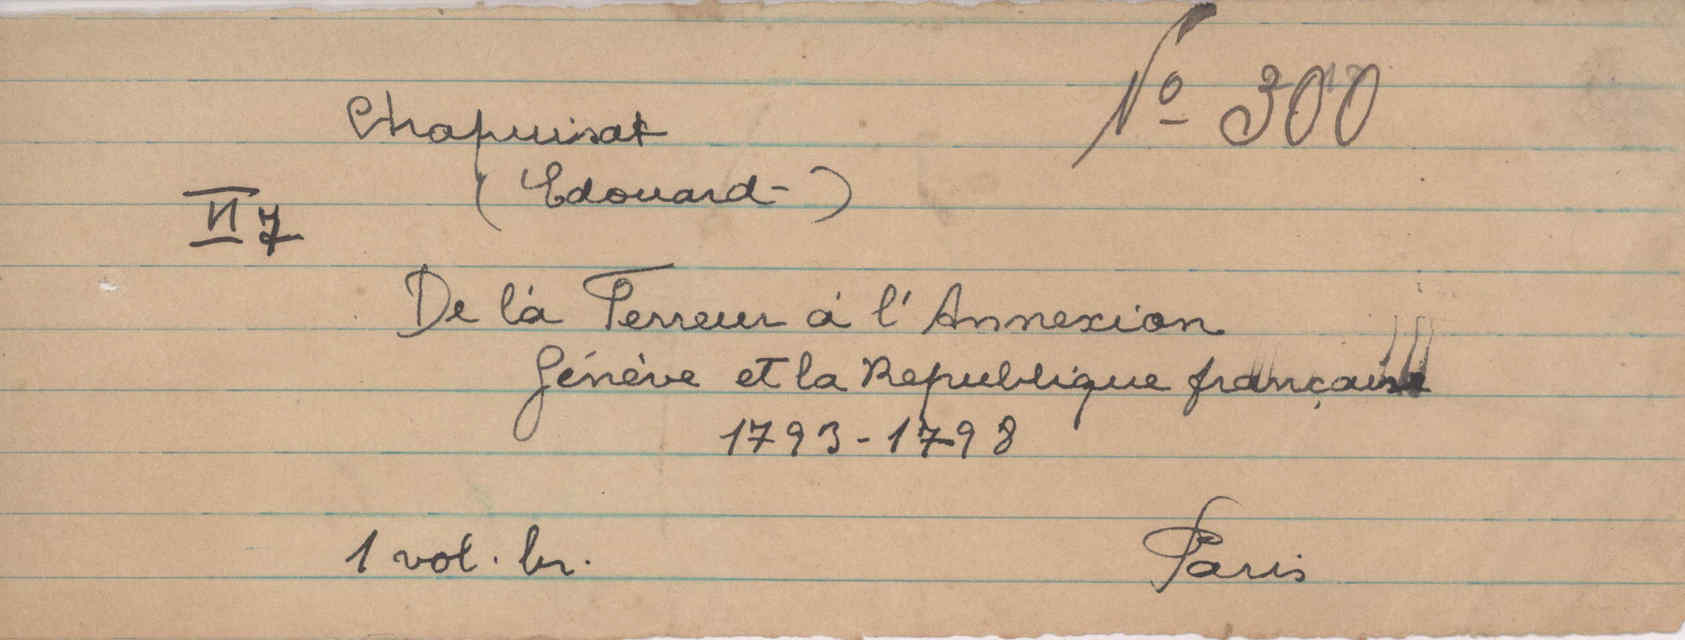 N° 300
Chapuisat
(Edouard-)
II 7
De là Terreur à l'Annexion
Génève et la Republique française
1793-1798
1 vol. br.
Paris